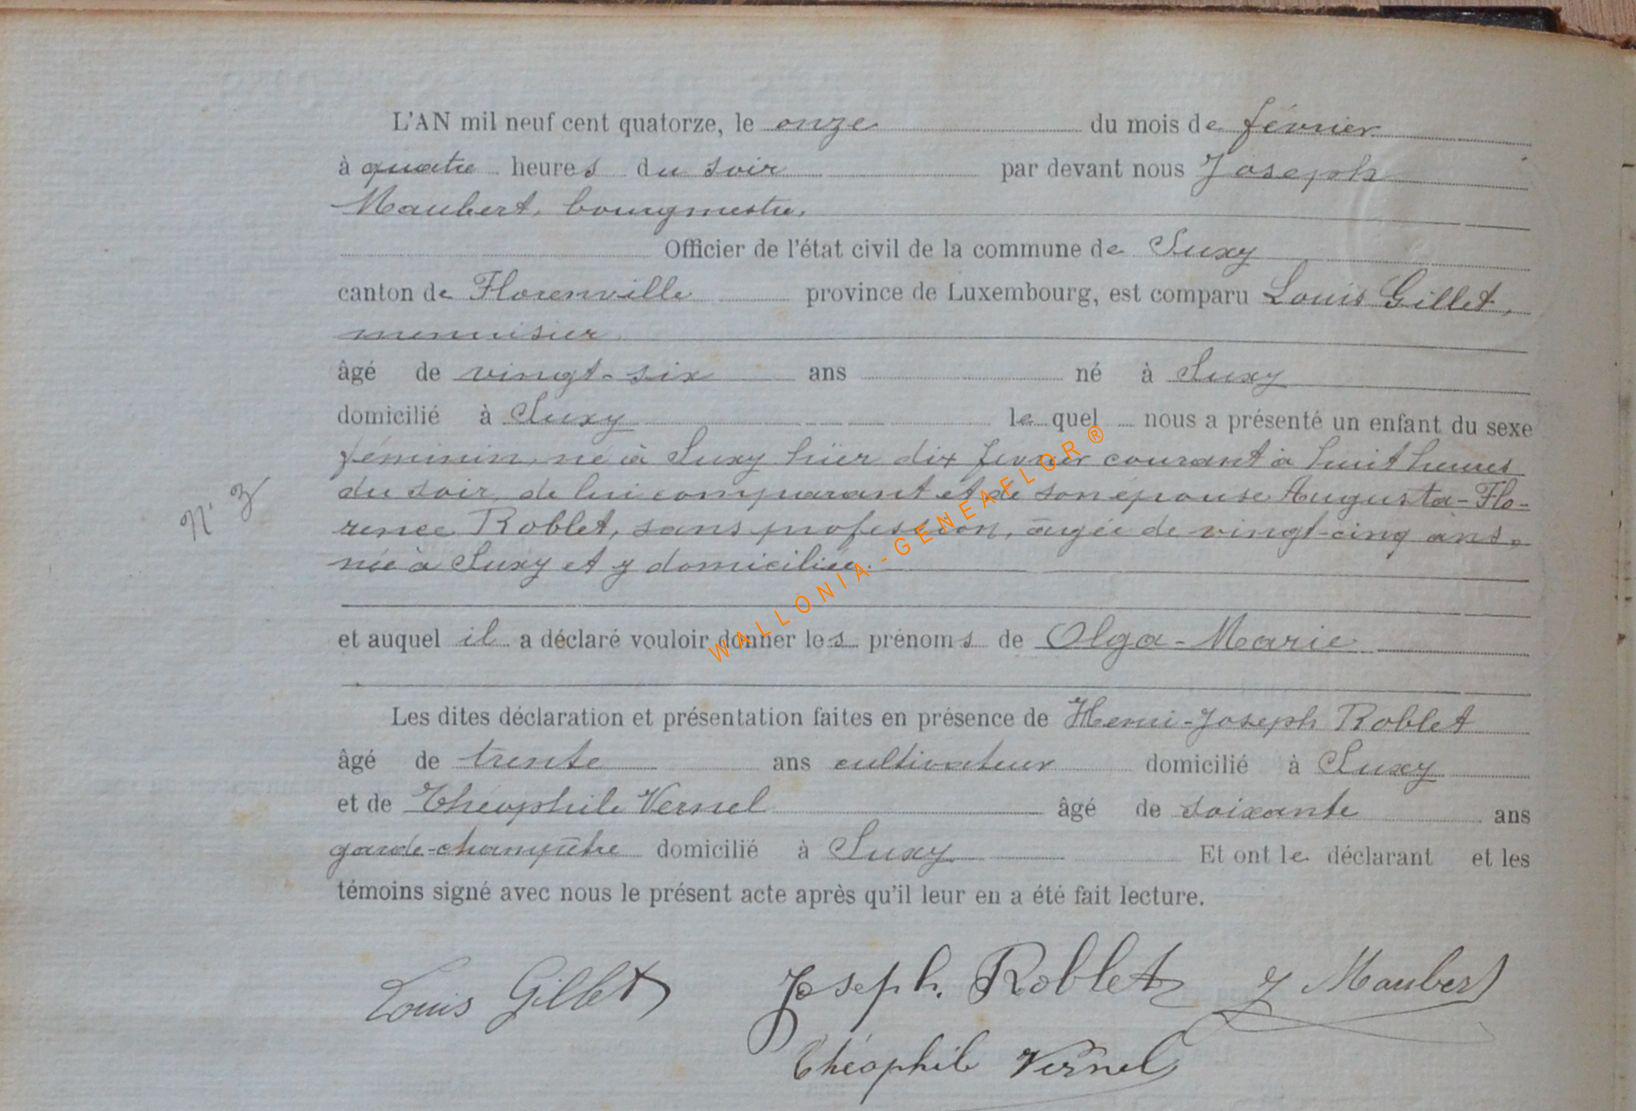 L'AN mil neuf cent quatorze, le onze du mois de février
à quatre heures du soir par devant nous Joseph
Maubert, bourgmestre,
Officier de l'état civil de la commune de Suxy
canton de Florenville province de Luxembourg, est comparu Louis Gillet,
menuisier
âgé de vingt-six ans né à Suxy
domicilié à Suxy lequel nous a présenté un enfant du sexe
féminin, né à Suxy hier dix fevrier courant à huit heures
du soir, de lui comparant et de son épouse Augusta-Flo-
rence Roblet, sans profession, âgée de vingt-cinq ans,
née à Suxy et y domiciliée.
N° 3
et auquel il a déclaré vouloir donner les prénoms de Olga-Marie
Les dites déclaration et présentation faites en présence de Henri-Joseph Roblet
âgé de trente ans cultivateur domicilié à Suxy
et de Théophile Vernel âgé de soixante ans
garde-champêtre domicilié à Suxy Et ont le déclarant et les
témoins signé avec nous le présent acte après qu'il leur en a été fait lecture.
Louis Gillet Joseph Roblet J Maubert
Théophile Vernel
WALLONIA-GENEAFLOR®